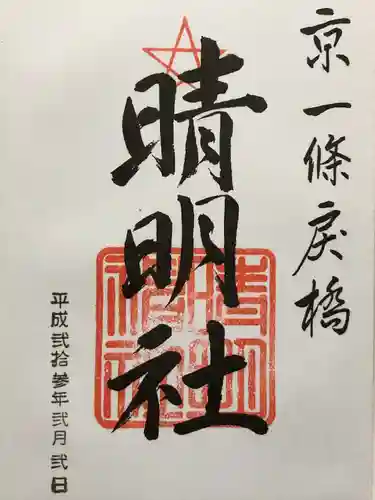 京一條戻橋
晴明社
晴明神社
平成弐拾参年弐月弐日